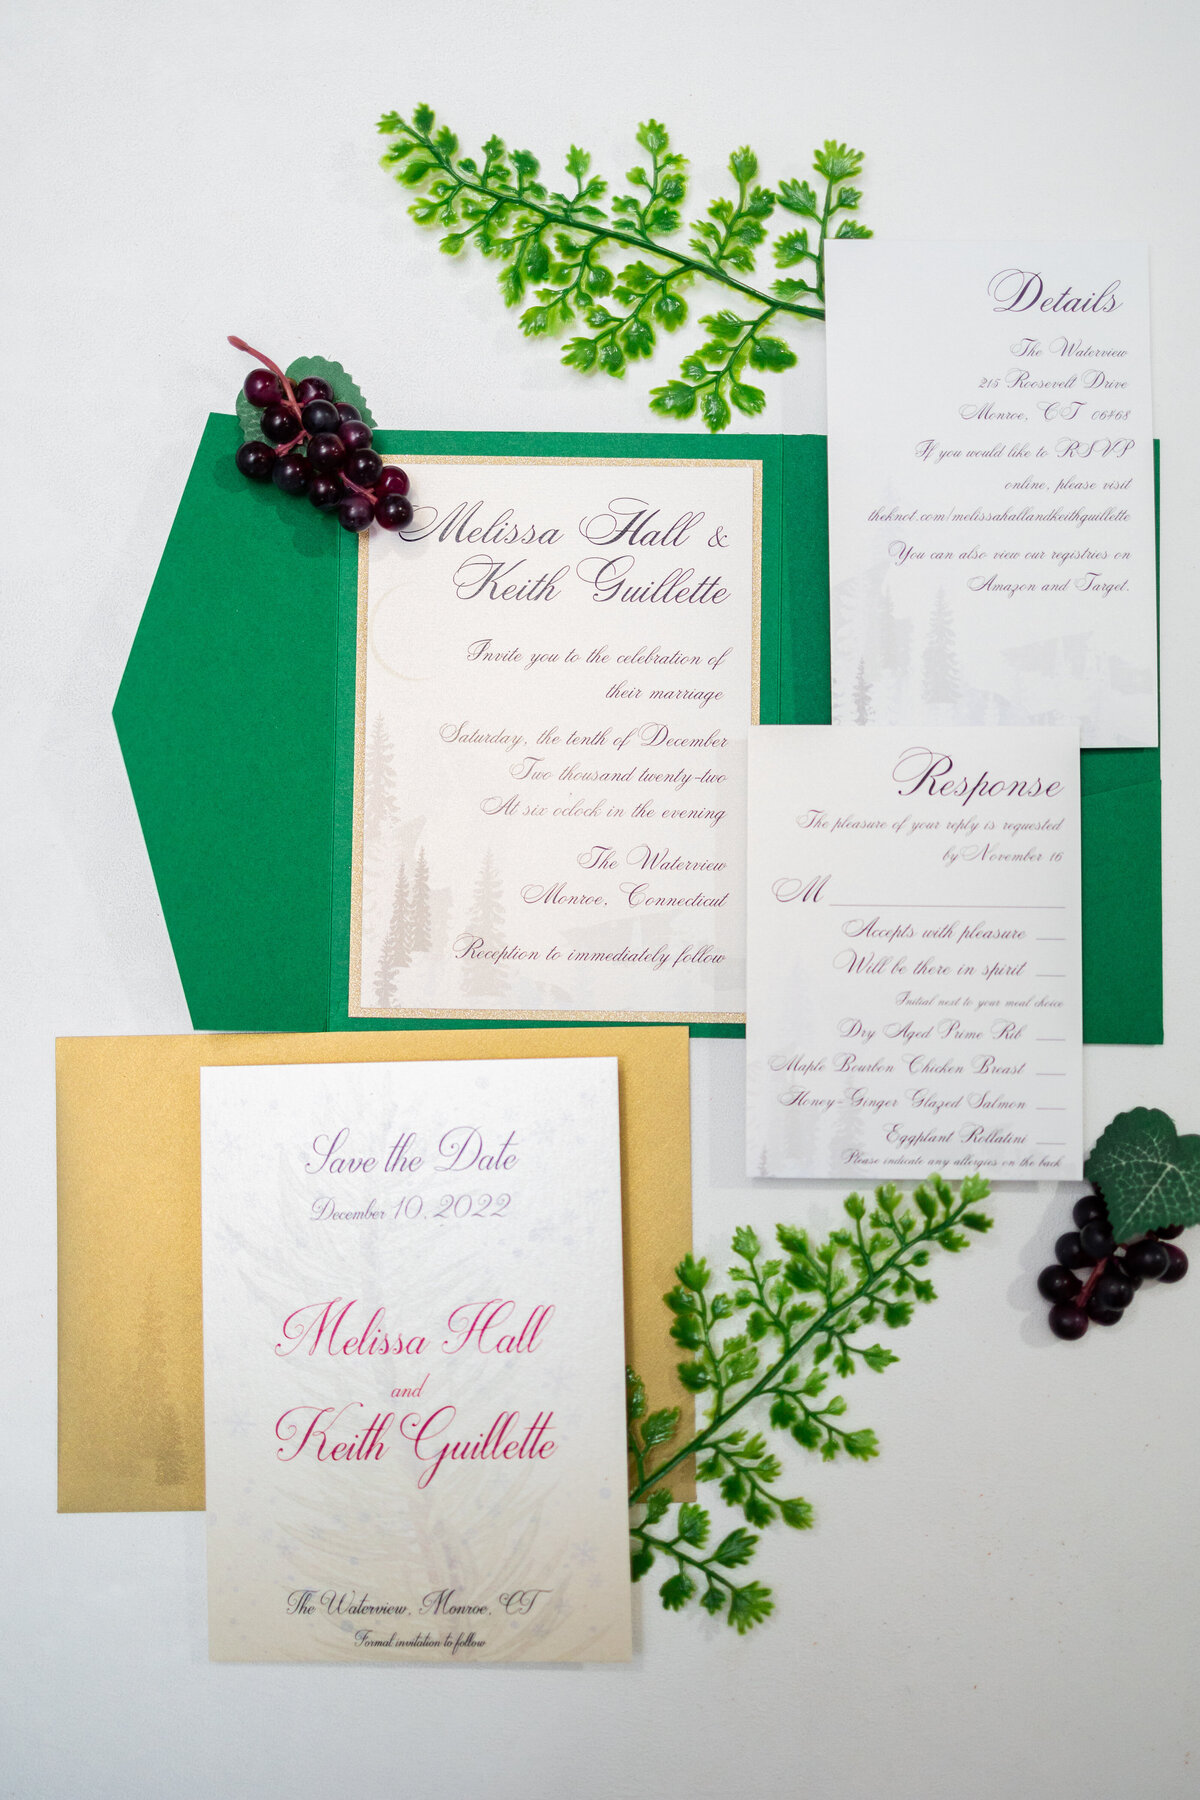 Details
The Waterview
215 Roosevelt Drive
Monroe, CT 06468
If you would like to RSVP
online, please visit
theknot.com/melissahallandkeithguillette
You can also view our registries on
Amazon and Target.
Melissa Hall &
Keith Guillette
Invite you to the celebration of
their marriage
Saturday, the tenth of December
Two thousand twenty-two
At six oclock in the evening
The Waterview
Monroe, Connecticut
Reception to immediately follow
Response
The pleasure of your reply is requested
by November 16
M
Accepts with pleasure
Will be there in spirit
Initial next to your meal choice
Dry Aged Prime Rib
Maple Bourbon Chicken Breast
Honey-Ginger Glazed Salmon
Eggplant Rollatini
Please indicate any allergies on the back
Save the Date
December 10, 2022
Melissa Hall
and
Keith Guillette
The Waterview, Monroe, CT
Formal invitation to follow